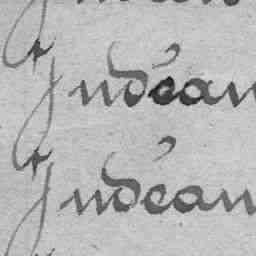 Judéan
Judéan